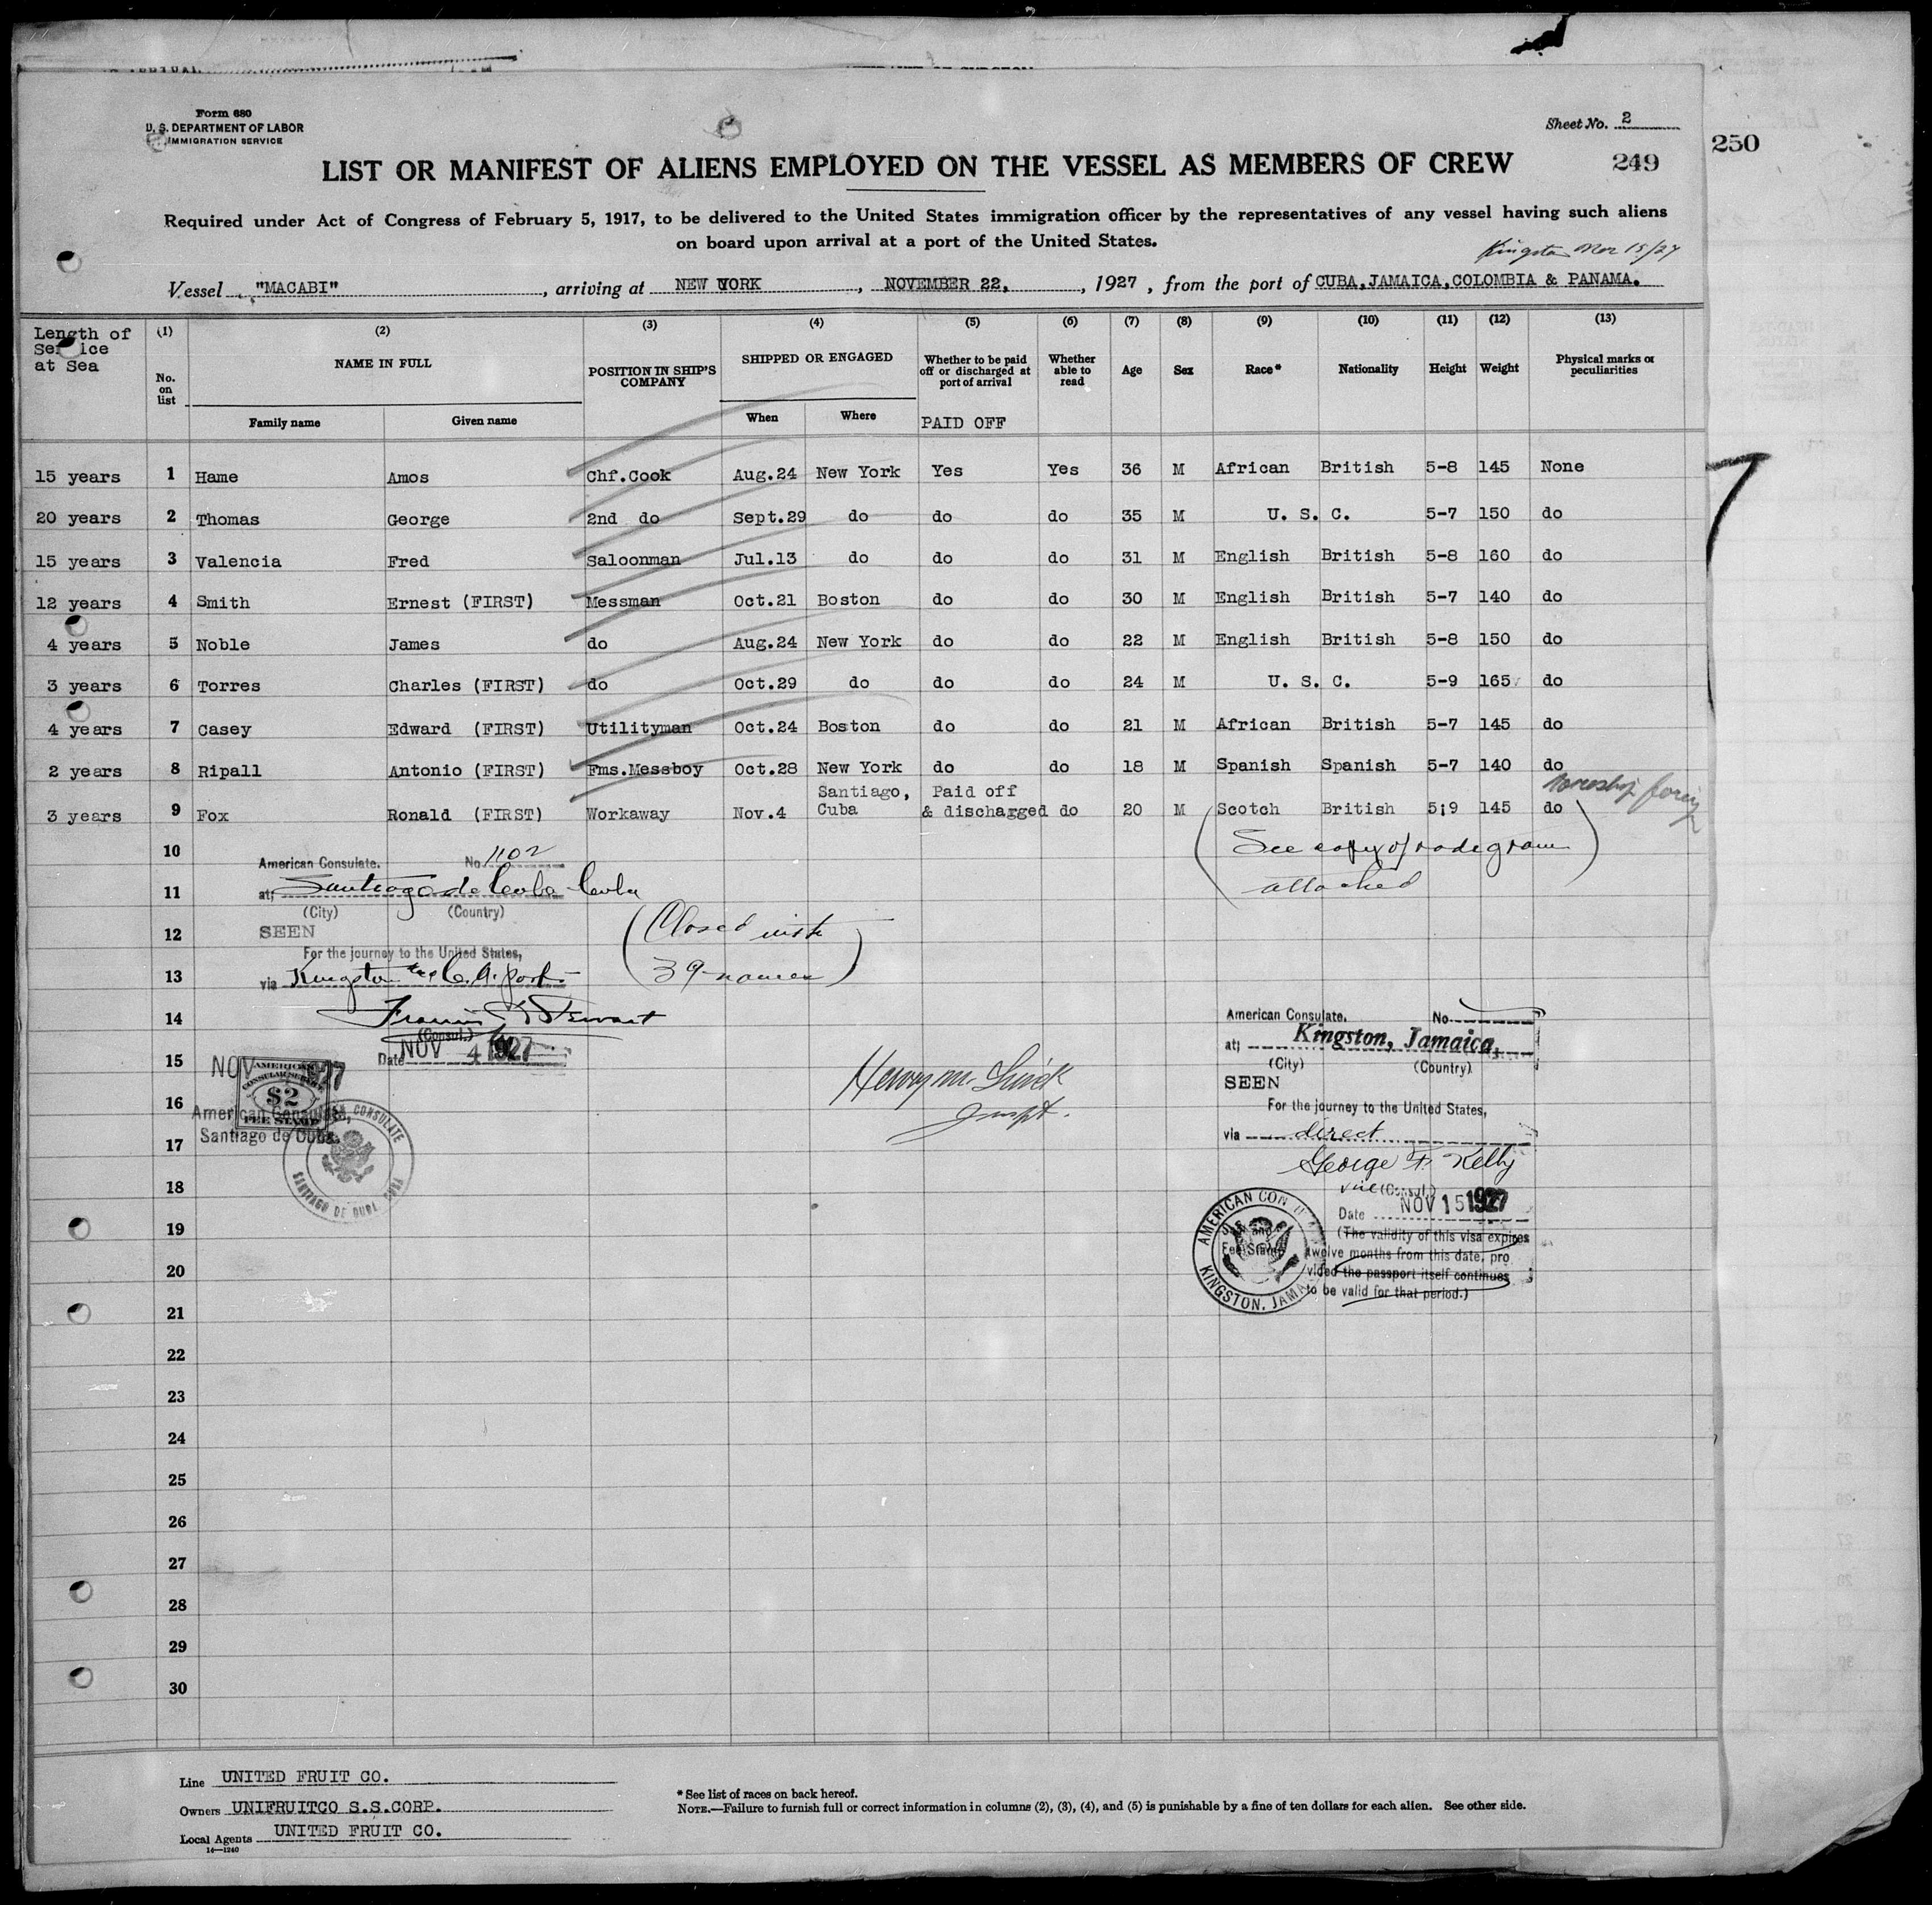 Form 680
U. S. DEPARTMENT OF LABOR
IMMIGRATION SERVICE
Sheet No. 2
249
250
LIST OR MANIFEST OF ALIENS EMPLOYED ON THE VESSEL AS MEMBERS OF CREW
Required under Act of Congress of February 5, 1917, to be delivered to the United States immigration officer by the representatives of any vessel having such aliens
on board upon arrival at a port of the United States.
Kingston Nov 15/27
Vessel "MACABI", arriving at NEW YORK, NOVEMBER 22, 1927, from the port of CUBA, JAMAICA, COLOMBIA & PANAMA.
Length of Service at Sea (1) No. on list (2) NAME IN FULL Family name Given name (3) POSITION IN SHIP'S COMPANY (4) SHIPPED OR ENGAGED When Where (5) Whether to be paid off or discharged at port of arrival PAID OFF (6) Whether able to read (7) Age (8) Sex (9) Race* (10) Nationality (11) Height (12) Weight (13) Physical marks or peculiarities
15 years 1 Hame Amos Chf.Cook Aug.24 New York Yes Yes 36 M African British 5-8 145 None
20 years 2 Thomas George 2nd do Sept.29 do do do 35 M U. S. C. 5-7 150 do
15 years 3 Valencia Fred Saloonman Jul.13 do do do 31 M English British 5-8 160 do
12 years 4 Smith Ernest (FIRST) Messman Oct.21 Boston do do 30 M English British 5-7 140 do
4 years 5 Noble James do Aug.24 New York do do 22 M English British 5-8 150 do
3 years 6 Torres Charles (FIRST) do Oct.29 do do do 24 M U. S. C. 5-9 165 do
4 years 7 Casey Edward (FIRST) Utilityman Oct.24 Boston do do 21 M African British 5-7 145 do
2 years 8 Ripall Antonio (FIRST) Fms.Messboy Oct.28 New York do do 18 M Spanish Spanish 5-7 140 do
3 years 9 Fox Ronald (FIRST) Workaway Nov.4 Santiago, Cuba Paid off & discharged do 20 M Scotch British 5;9 145 do
10
(See copy of radiogram
attached)
American Consulate. No. 1102
11
at; Santiago de Cuba Cuba
(City) (Country)
12
SEEN
(Closed with
39 names)
For the journey to the United States,
13
via Kingston
14
(Consul.)
Date NOV 4 1927
15
NOV
AMERICAN
CONSULAR SERVICE
$2
FEE STAMP
16
American Consulate,
Santiago de Cuba.
AMERICAN CONSULATE
SANTIAGO DE CUBA CUBA
Henry M.
Inspt.
American Consulate. No.
at; Kingston, Jamaica,
(City) (Country)
SEEN
For the journey to the United States,
via direct
George F. Kelly
vice (Consul.)
Date NOV 15 1927
(The validity of this visa expires
twelve months from this date, pro
vided the passport itself continues
to be valid for that period.)
AMERICAN CONSULATE
KINGSTON, JAMAICA
Fee Stamp
17
18
19
20
21
22
23
24
25
26
27
28
29
30
Line UNITED FRUIT CO.
Owners UNIFRUITCO S.S.CORP.
Local Agents UNITED FRUIT CO.
14—1240
* See list of races on back hereof.
NOTE.—Failure to furnish full or correct information in columns (2), (3), (4), and (5) is punishable by a fine of ten dollars for each alien. See other side.